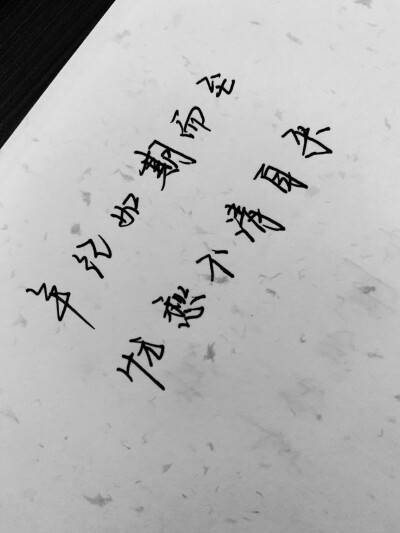 年纪如期而至
忧愁不请自来